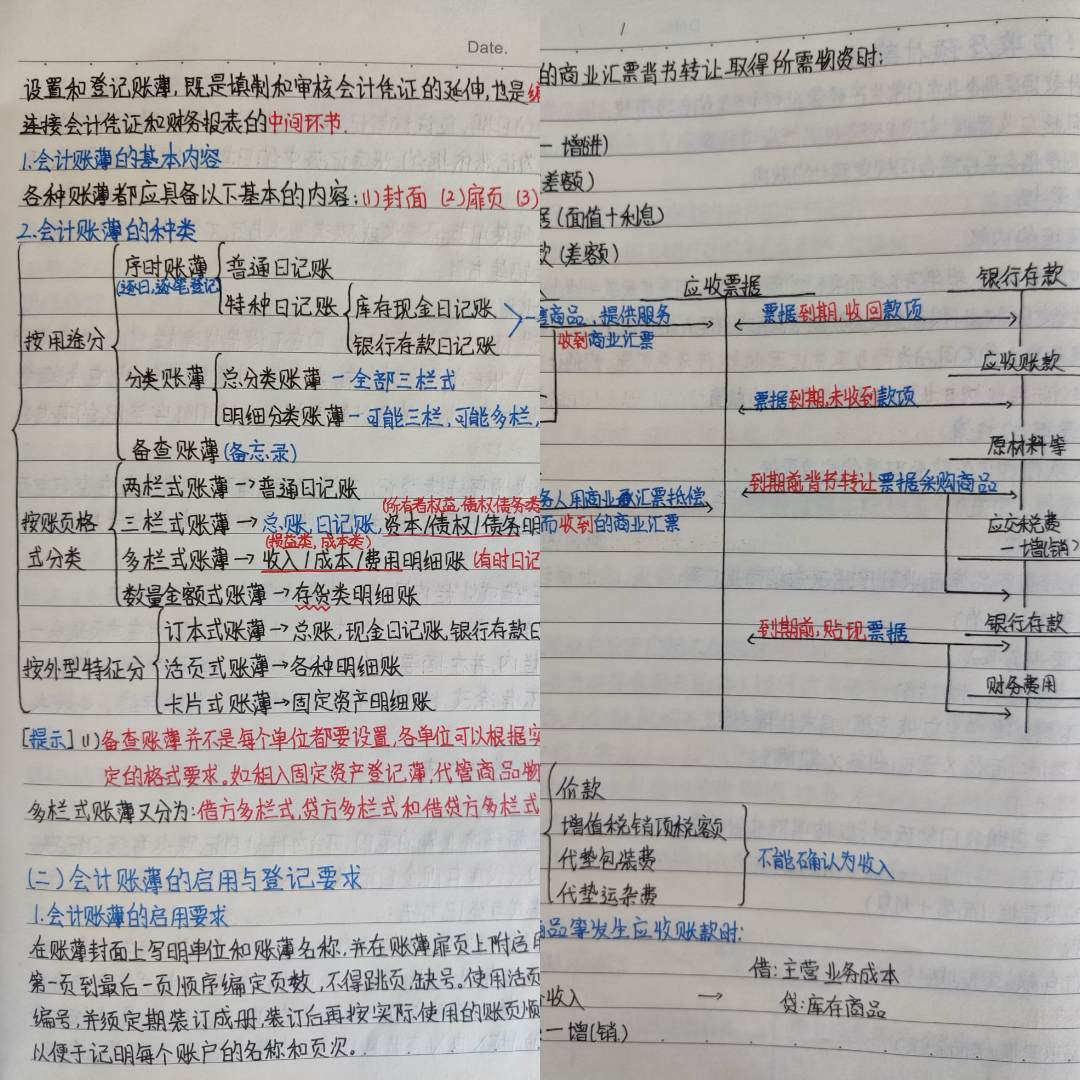 Date.
设置和登记账薄,既是填制和审核会计凭证的延伸,也是编
连接会计凭证和财务报表的中间环节.
1.会计账薄的基本内容
各种账薄都应具备以下基本的内容:(1)封面 (2)扉页 (3)
2.会计账薄的种类
按用途分
序时账薄
(逐日,逐笔登记)
普通日记账
特种日记账
库存现金日记账
银行存款日记账
分类账薄
总分类账薄-全部三栏式
明细分类账薄-可能三栏,可能多栏,
备查账薄(备忘录)
按账页格
式分类
两栏式账薄→普通日记账
(所有者权益,债权债务类
三栏式账薄→总账,日记账,资本/债权/债务明
(损益类,成本类)
多栏式账薄→收入/成本/费用明细账(有时日记
数量金额式账薄→存货类明细账
按外型特征分
订本式账薄→总账,现金日记账,银行存款日
活页式账薄→各种明细账
卡片式账薄→固定资产明细账
[提示](1)备查账薄并不是每个单位都要设置,各单位可以根据实
定的格式要求。如租入固定资产登记薄,代管商品物
多栏式账薄又分为:借方多栏式,贷方多栏式和借贷方多栏式
(二)会计账薄的启用与登记要求
1.会计账薄的启用要求
在账薄封面上写明单位和账薄名称,并在账薄扉页上附启用
第一页到最后一页顺序编定页数,不得跳页,缺号。使用活页
编号,并须定期装订成册,装订后再按实际使用的账页顺
以便于记明每个账户的名称和页次。
的商业汇票背书转让取得所需物资时:
一增(进)
差额)
据(面值+利息)
款(差额)
应收票据
银行存款
售商品、提供服务
收到商业汇票
票据到期,收回款项
应收账款
票据到期,未收到款项
原材料等
到期前背书转让票据采购商品
务人用商业承汇票抵偿
而收到的商业汇票
应交税费
一增(销)
银行存款
到期前,贴现票据
财务费用
价款
增值税销项税额
代垫包装费
代垫运杂费
不能确认为收入
品等发生应收账款时:
借:主营业务成本
务收入 → 贷:库存商品
一增(销)